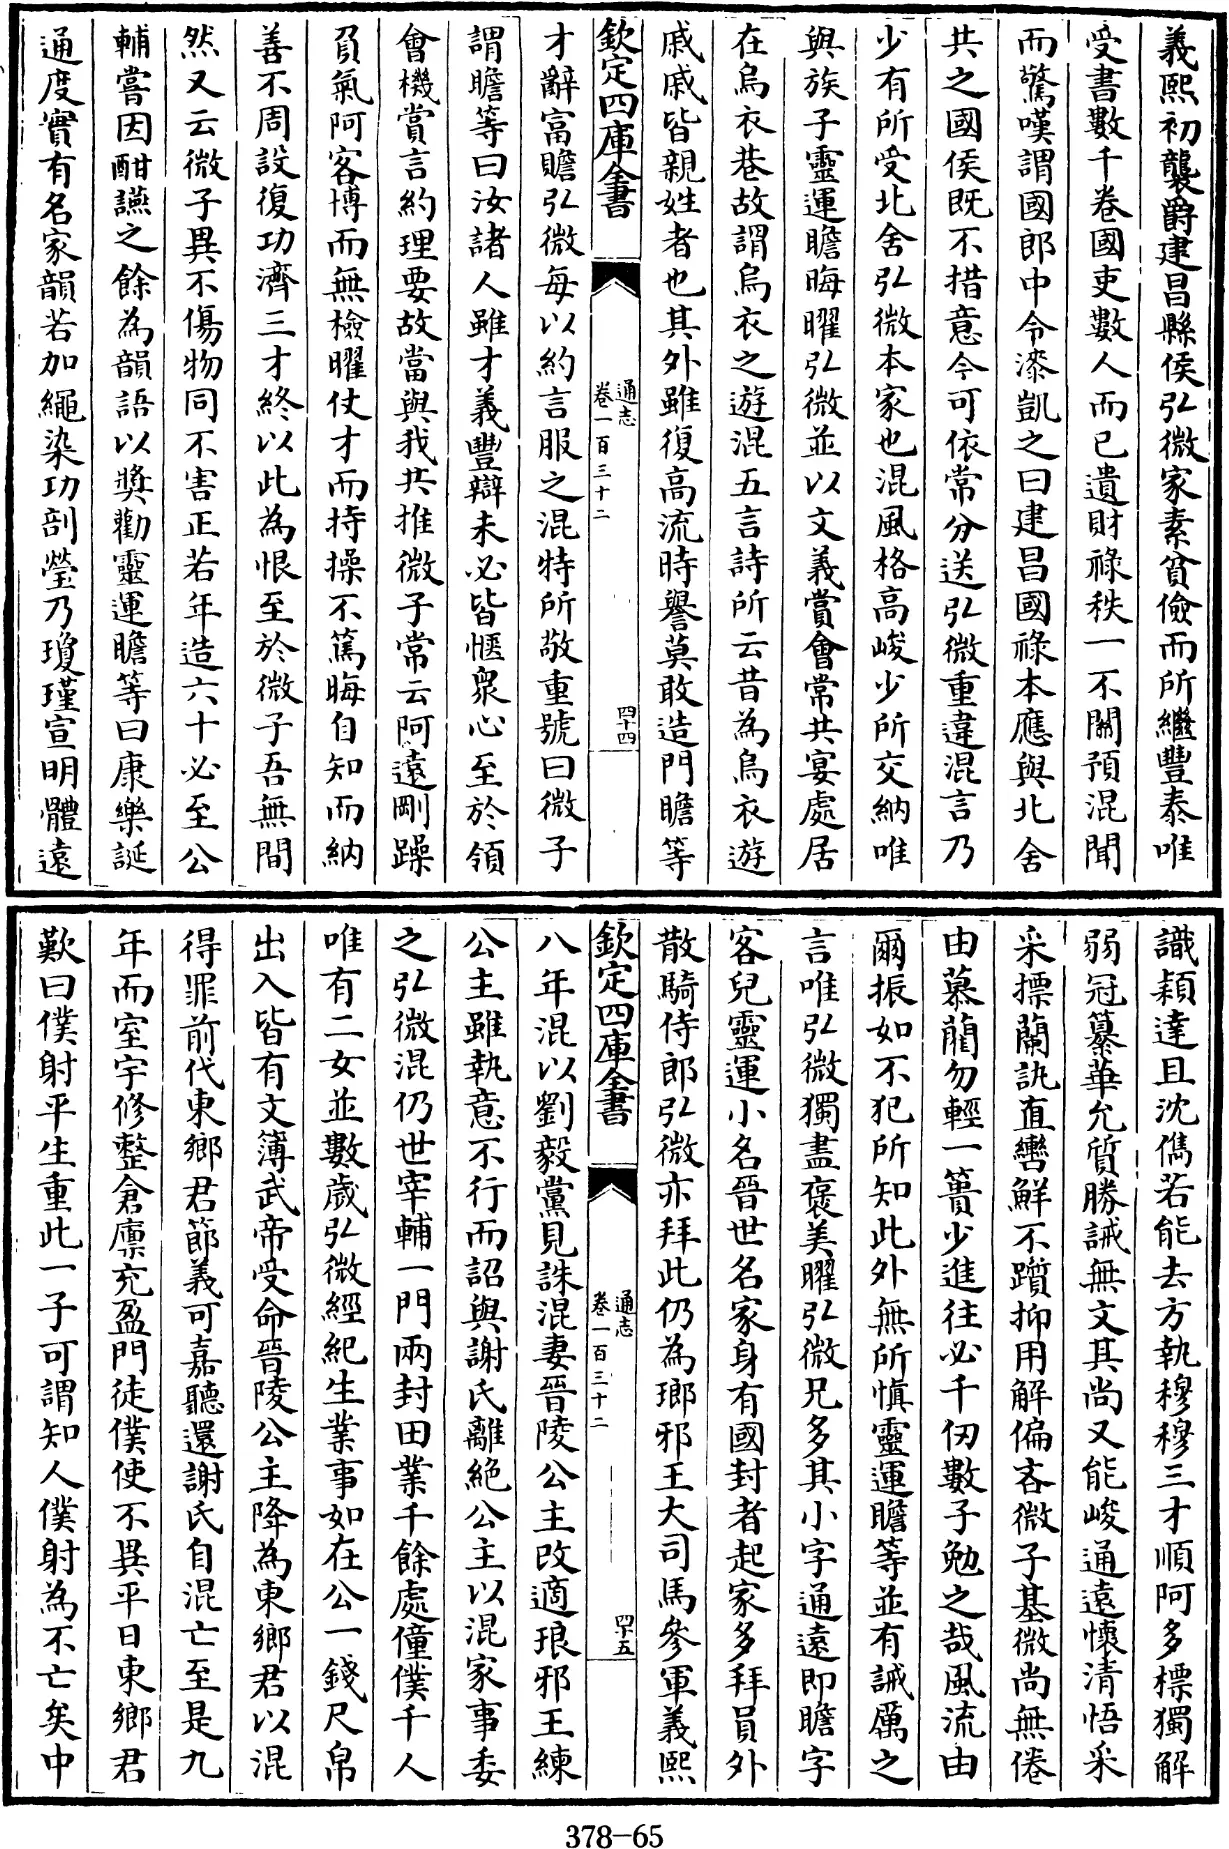 義熙初襲爵建昌縣侯弘微家素貧儉而所繼豐泰唯
受書數千卷國吏數人而已遺財祿秩一不關預混聞
而驚嘆謂國郎中令漆凱之曰建昌國祿本應與北舍
共之國侯既不措意今可依常分送弘微重違混言乃
少有所受北舍弘微本家也混風格高峻少所交納唯
與族子靈運瞻晦曜弘微並以文義賞會常共宴處居
在烏衣巷故謂烏衣之遊混五言詩所云昔為烏衣遊
戚戚皆親姓者也其外雖復高流時譽莫敢造門瞻等
欽定四庫全書
通志
卷一百三十二
四十四
才辭富贍弘微每以約言服之混特所敬重號曰微子
謂瞻等曰汝諸人雖才義豐辯未必皆愜衆心至於領
會機賞言約理要故當與我共推微子常云阿遠剛躁
負氣阿客博而無檢曜仗才而持操不篤晦自知而納
善不周設復功濟三才終以此為恨至於微子吾無間
然又云微子異不傷物同不害正若年造六十必至公
輔嘗因酣讌之餘為韻語以獎勸靈運瞻等曰康樂誕
通度實有名家韻若加繩染功剖瑩乃瓊瑾宣明體遠
識穎達且沈儁若能去方執穆穆三才順阿多標獨解
弱冠纂華允質勝誡無文其尚又能峻通遠懷清悟采
采摽蘭訊直轡鮮不躓抑用解偏吝微子基微尚無倦
由慕藺勿輕一簣少進往必千仞數子勉之哉風流由
爾振如不犯所知此外無所慎靈運瞻等並有誡厲之
言唯弘微獨盡褒美曜弘微兄多其小字通遠即瞻字
客兒靈運小名晉世名家身有國封者起家多拜員外
散騎侍郎弘微亦拜此仍為瑯邪王大司馬參軍義熙
欽定四庫全書
通志
卷一百三十二
四十五
八年混以劉毅黨見誅混妻晉陵公主改適琅邪王練
公主雖執意不行而詔與謝氏離絶公主以混家事委
之弘微混仍世宰輔一門兩封田業千餘處僮僕千人
唯有二女並數歲弘微經紀生業事如在公一錢尺帛
出入皆有文簿武帝受命晉陵公主降為東鄉君以混
得罪前代東鄉君節義可嘉聽還謝氏自混亡至是九
年而室宇修整倉廩充盈門徒僕使不異平日東鄉君
歎曰僕射平生重此一子可謂知人僕射為不亡矣中
378-65